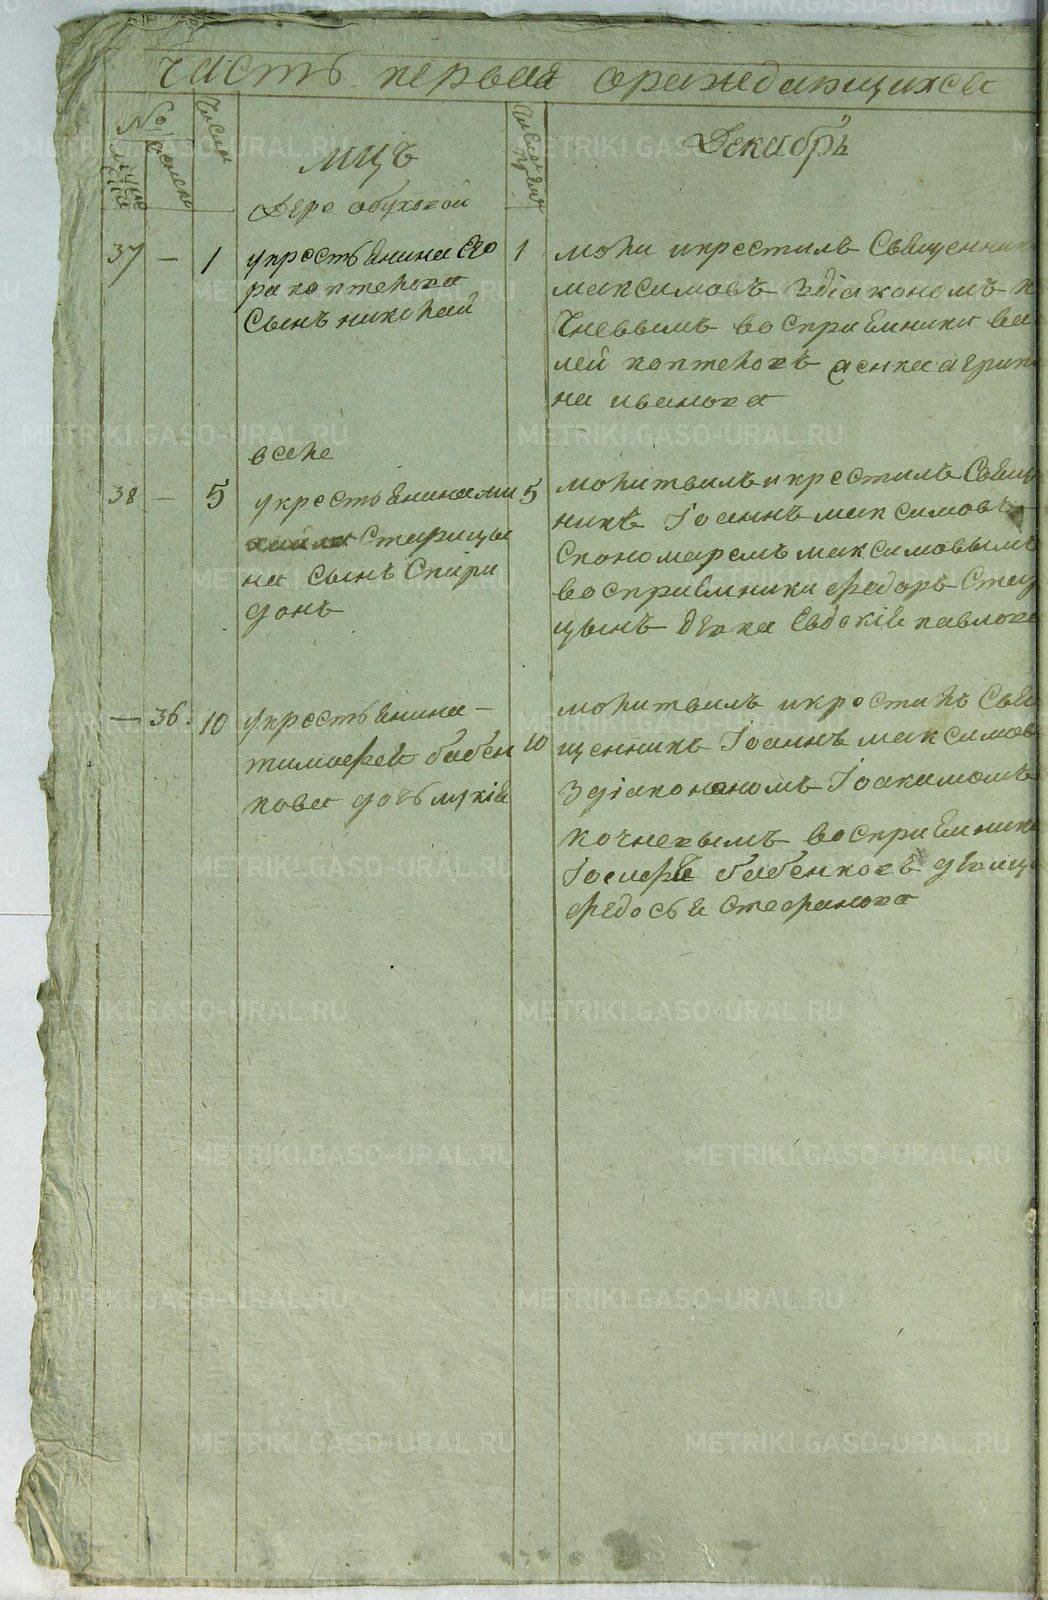 Часть первая оражедающихся
№
мужеска
женска
Число
Мцъ
Число крещ
Декабрь
Дере обуховой
37 — 1 укрестьянина Его
ра коптелова
Сынъ николай
1 моли икрестилъ Священник
максимовъ Здіакономъ к
Чневымъ восприемники ва
лей коптеловъ
на иванова
вселе
38 — 5 укрестьянина ми
хайла Старицы
на сынъ Спири
донъ
5 молитвилъ икрестилъ Свящ
никъ Іоаннъ максимовъ
Спономаремъ максимовымъ
восприемники федоръ Стар
цынъ девка Евдокія павлова
— 36 10 укрестьянина —
тимофея бабен
кова дочь лукія
10 молитвилъ икрестилъ Свя
щенникъ Іоаннъ максимов
Здіакононом Іоакимомъ
кочневымъ восприемник
Іосифъ бабенковъ девица
федосья Стефанова
METRIKI.GASO-URAL.RU